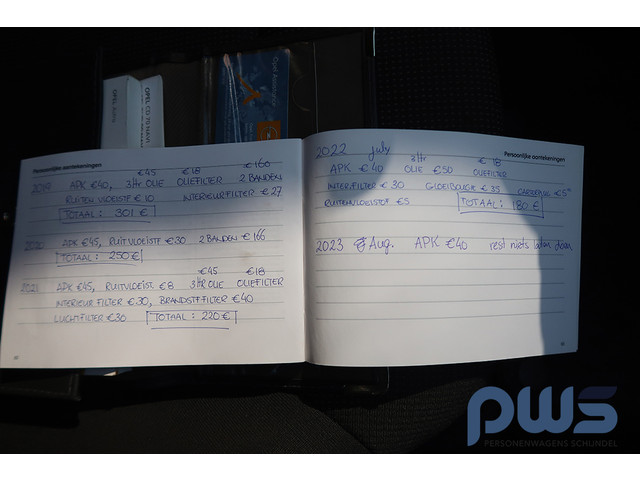 Opel Assistance
OPEL CD 70 NAVI
OPEL
Persoonlijke aantekeningen:
€45 €18 €166
2019 APK €40, 3 ltr OLIE OLIEFILTER 2 BANDEN
RUITENVLOEISTF €10 INTERIEURFILTER €27
TOTAAL: 301 €
2020 APK €45, RUITVLOEISTF €30 2 BANDEN €166
TOTAAL: 250€
€45 €18
2021 APK €45, RUITVLOEIST €8 3 ltr OLIE OLIEFILTER
INTERIEUR FILTER €30, BRANDSTFFILTER €40
LUCHTFILTER €30 TOTAAL: 220€
Persoonlijke aantekeningen:
2022 july 3 ltr € 18
APK €40 OLIE €50 OLIEFILTER
INTERFILTER €30 GLOEIBOUGIE €35
RUITENVLOEISTOF €5 TOTAAL: 180 €
2023 Aug. APK €40 rest niets laten doen
PWS
PERSONENWAGENS SCHIJNDEL